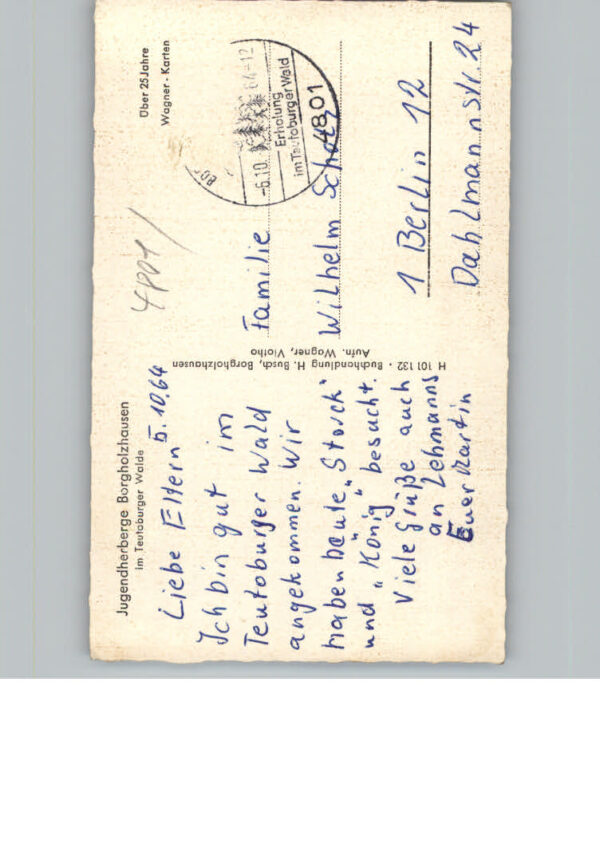 Jugendherberge Borgholzhausen
im Teutoburger Walde
Liebe Eltern 5.10.64
Ich bin gut im
Teutoburger Wald
angekommen. Wir
haben heute „Storck“
und „König“ besucht.
Viele Grüße auch
an Lehmanns
Euer Martin
H 101 132 · Buchhandlung H. Busch, Borgholzhausen
Aufn. Wagner, Vlotho
Über 25 Jahre
Wagner-Karten
4801
-6.10. 64-12
Erholung
im Teutoburger Wald
4801
Familie
Wilhelm Scholz
1 Berlin 12
Dahlmannstr. 24